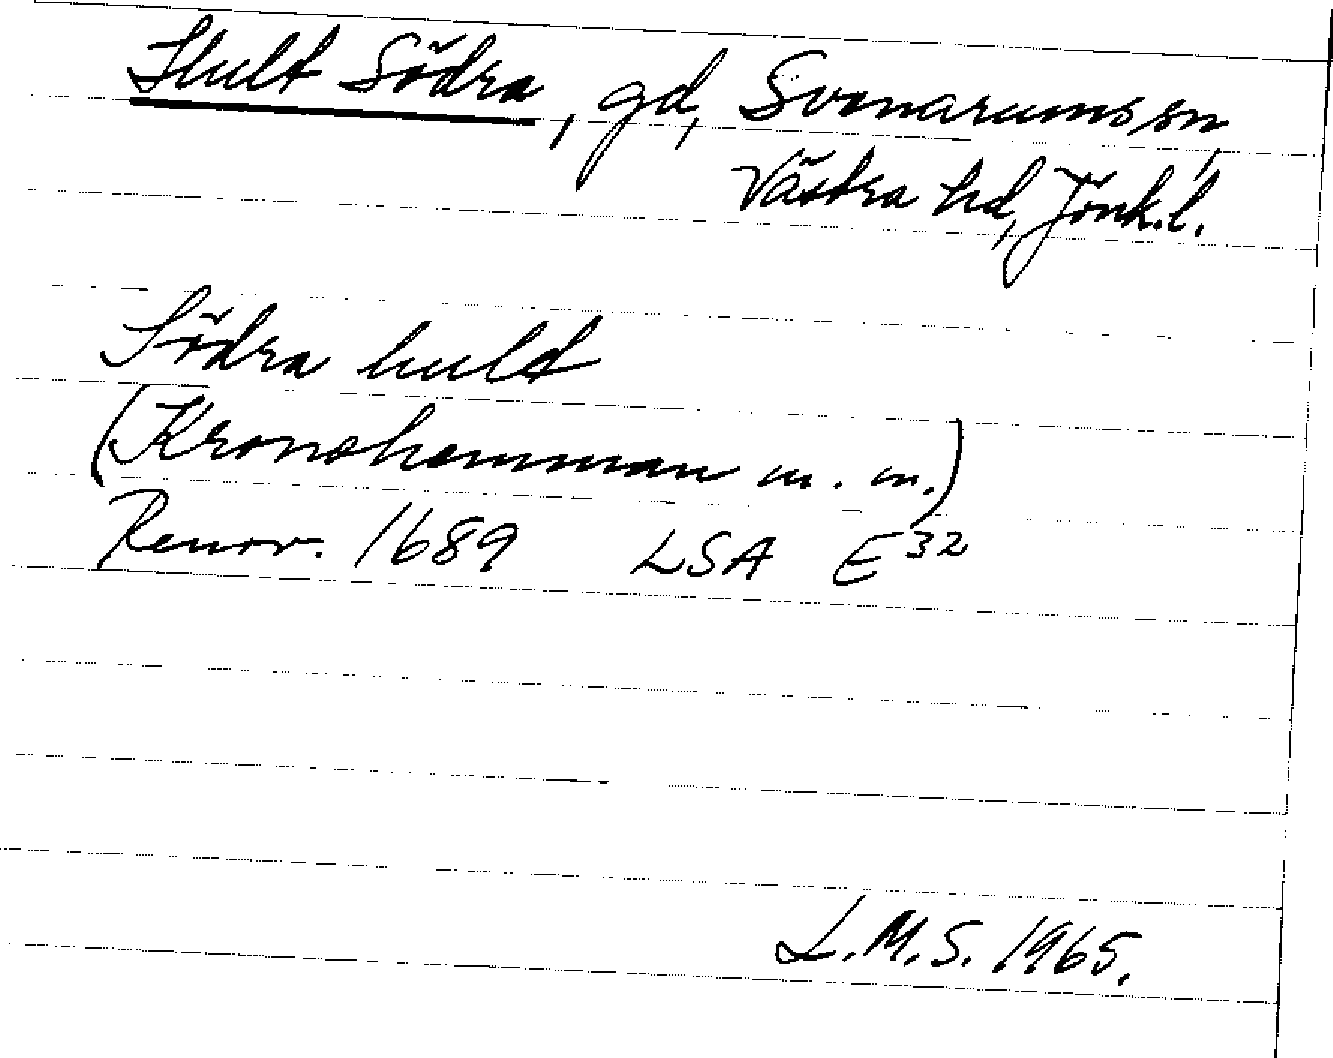 Hult Södra, gd, Svenarums sn,
Västra hd, Jönk.l.
Södra huld
(Kronohemman m.m.)
Renov. 1689 LSA E32
L.M.S. 1965.